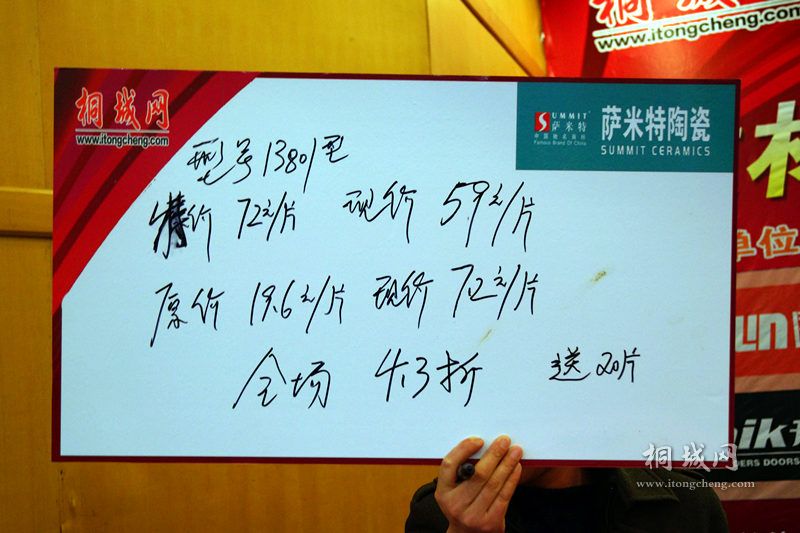 桐城网
www.itongcheng.com
桐城网
www.itongcheng.com
SUMMIT
萨米特
中国驰名商标
Famous Brand Of China
萨米特陶瓷
SUMMIT CERAMICS
型号13801型
特价 72元/片 现价 5.9元/片
原价 19.6元/片 现价 7.2元/片
全场 4.3折 送20片
材
单位
DERS DOORS
桐城网
www.itongcheng.com